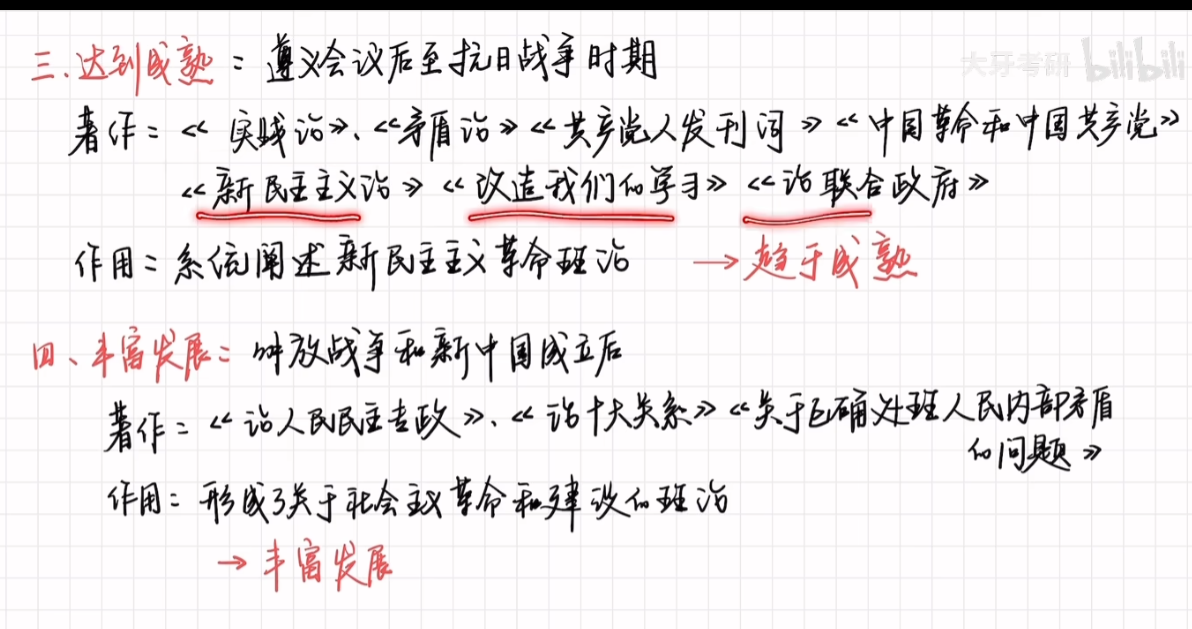 大牙考研 bilibili
三、达到成熟：遵义会议后至抗日战争时期
著作：《实践论》、《矛盾论》《共产党人发刊词》《中国革命和中国共产党》
《新民主主义论》《改造我们的学习》《论联合政府》
作用：系统阐述新民主主义革命理论 →趋于成熟
四、丰富发展：解放战争和新中国成立后
著作：《论人民民主专政》、《论十大关系》《关于正确处理人民内部矛盾
的问题》
作用：形成了关于社会主义革命和建设的理论
→丰富发展